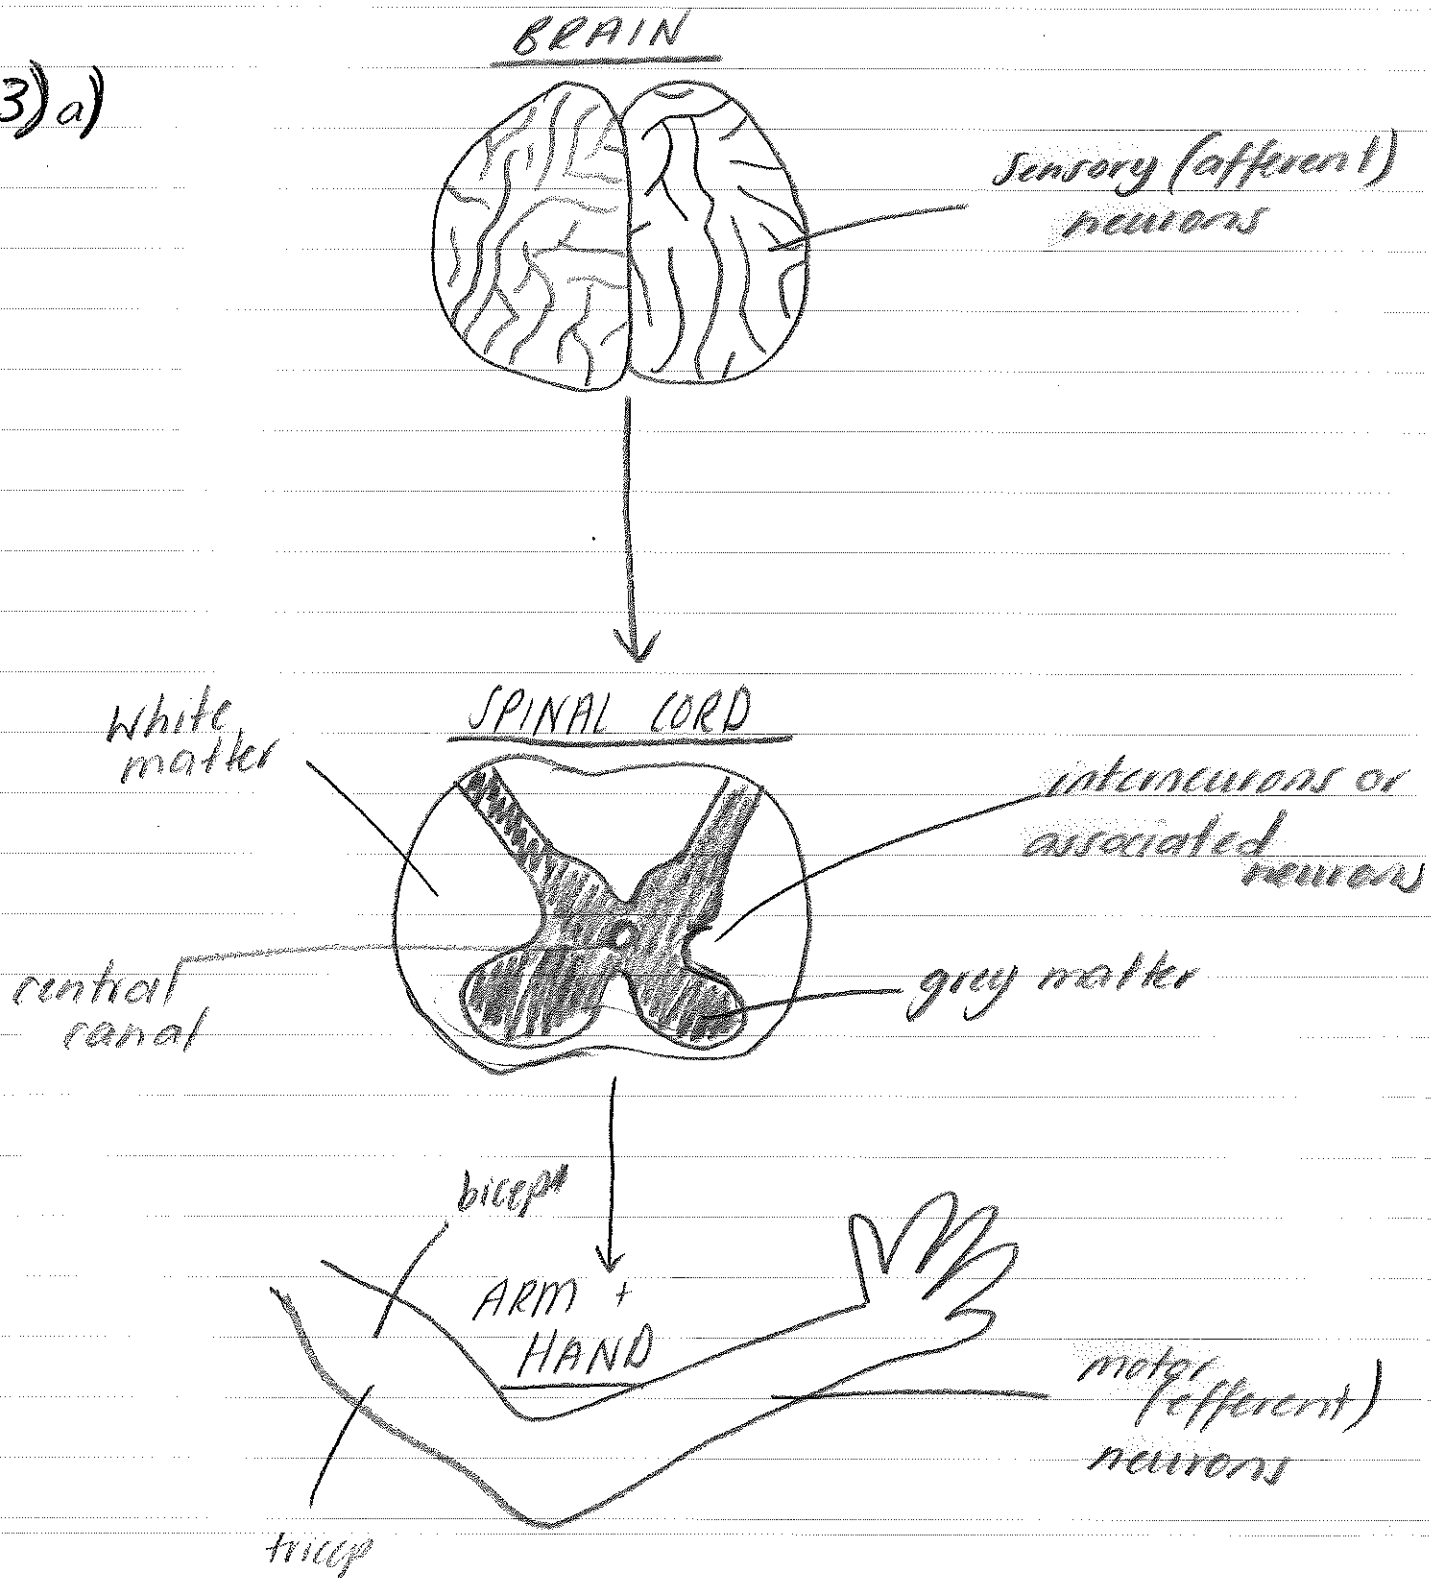 BRAIN
3) a)
sensory (afferent)
neurons
SPINAL CORD
white
matter
interneurons or
associated
neurons
grey matter
central
canal
bicep
ARM +
HAND
motor
(efferent)
neurons
tricep